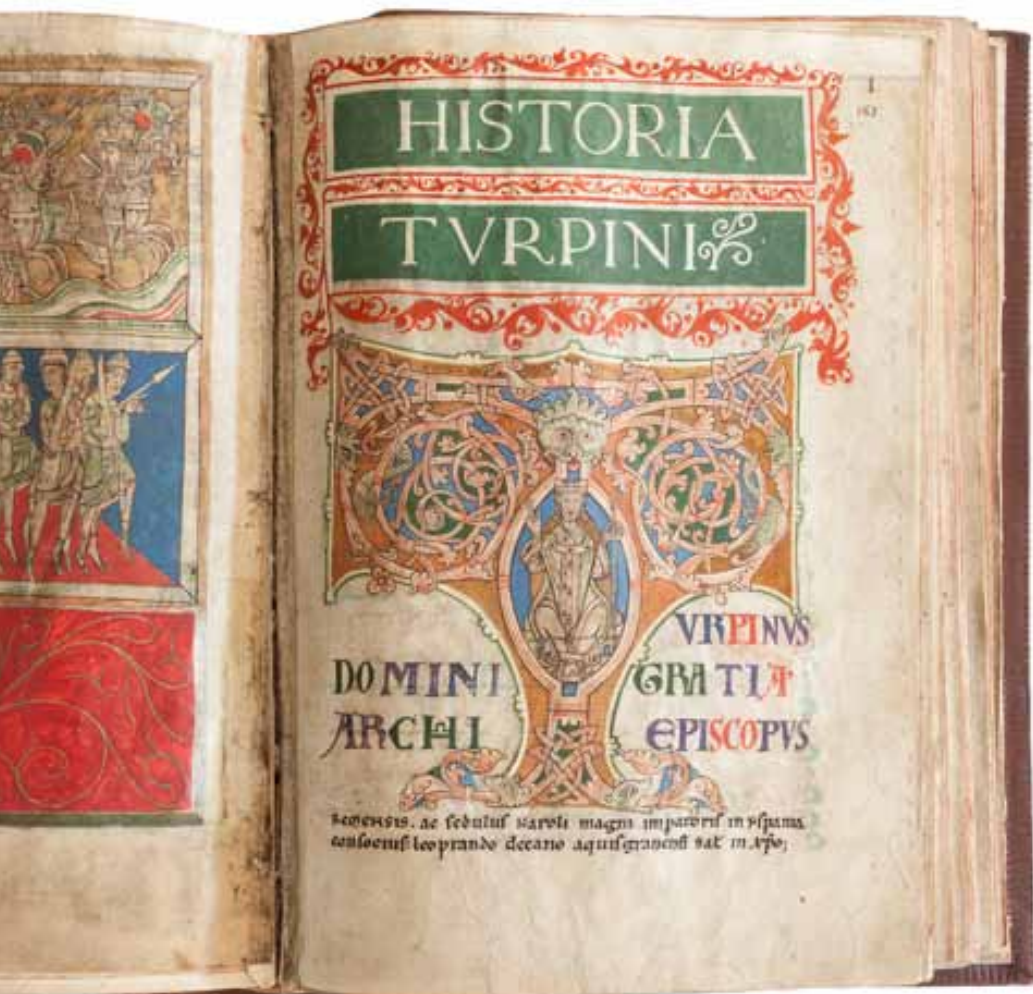 HISTORIA
TVRPINI
I
VRPINVS
DOMINI GRATIA
ARCHI EPISCOPVS
Remensis. ac sedulus karoli magni imparoris in yspania
consocius. leoprando decano aquisgranensi sat in xpo;